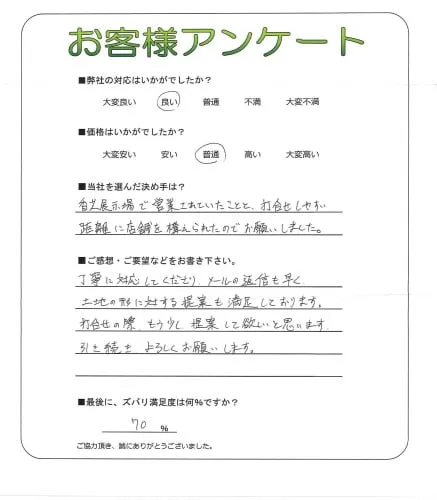 お客様アンケート
■弊社の対応はいかがでしたか?
大変良い 良い 普通 不満 大変不満
■価格はいかがでしたか?
大変安い 安い 普通 高い 大変高い
■当社を選んだ決め手は?
展示場で営業されていたことと、打合せしやすい
距離に店舗を構えられたのでお願いしました。
■ご感想・ご要望などをお書き下さい。
丁寧に対応してくださり、メールの返信も早く、
土地の形に対する提案も満足しております。
打合せの際、もう少し提案して欲しいと思います。
引き続き よろしくお願いします。
■最後に、ズバリ満足度は何%ですか?
70 %
ご協力頂き、誠にありがとうございました。